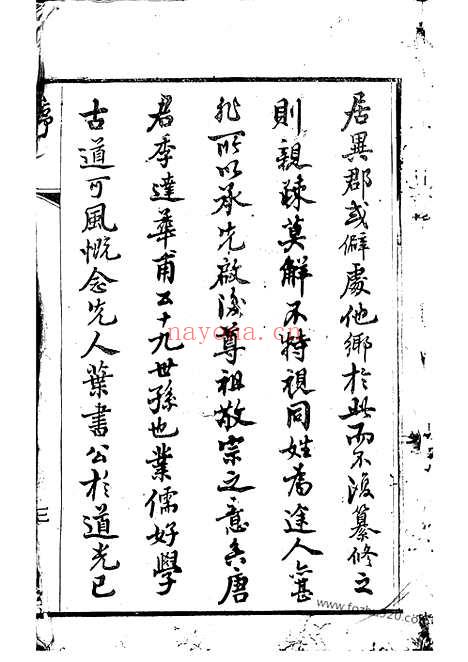 居異郡或僻處他鄉於此而不復纂修之
則親疎莫解不特視同姓為途人甚
非所以承先啟後尊祖敬宗之意矣唐
君季達華甫五十九世孫也業儒好學
古道可風慨念先人葉書公於道光己
序
三
nayona.cn